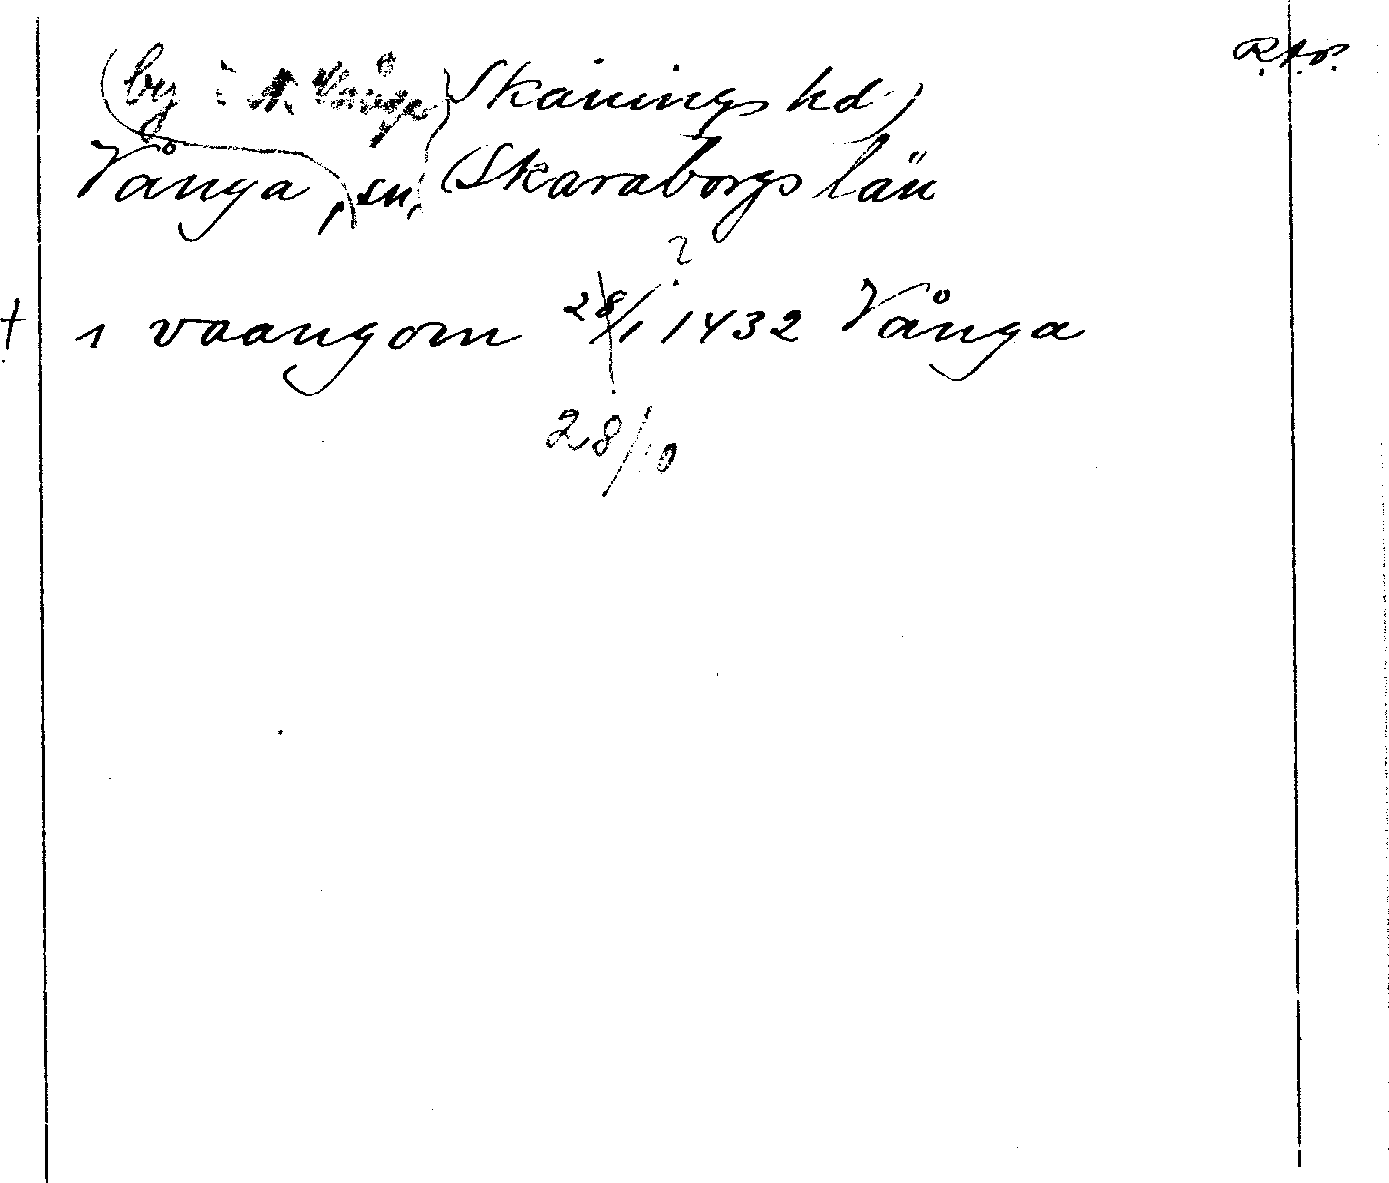 R.A.P.
(by i N. Vånga) Skånings hd)
Vånga, sn, (Skaraborgs län
?
+ ı vaangom 28/1 1432 Vånga
28/10